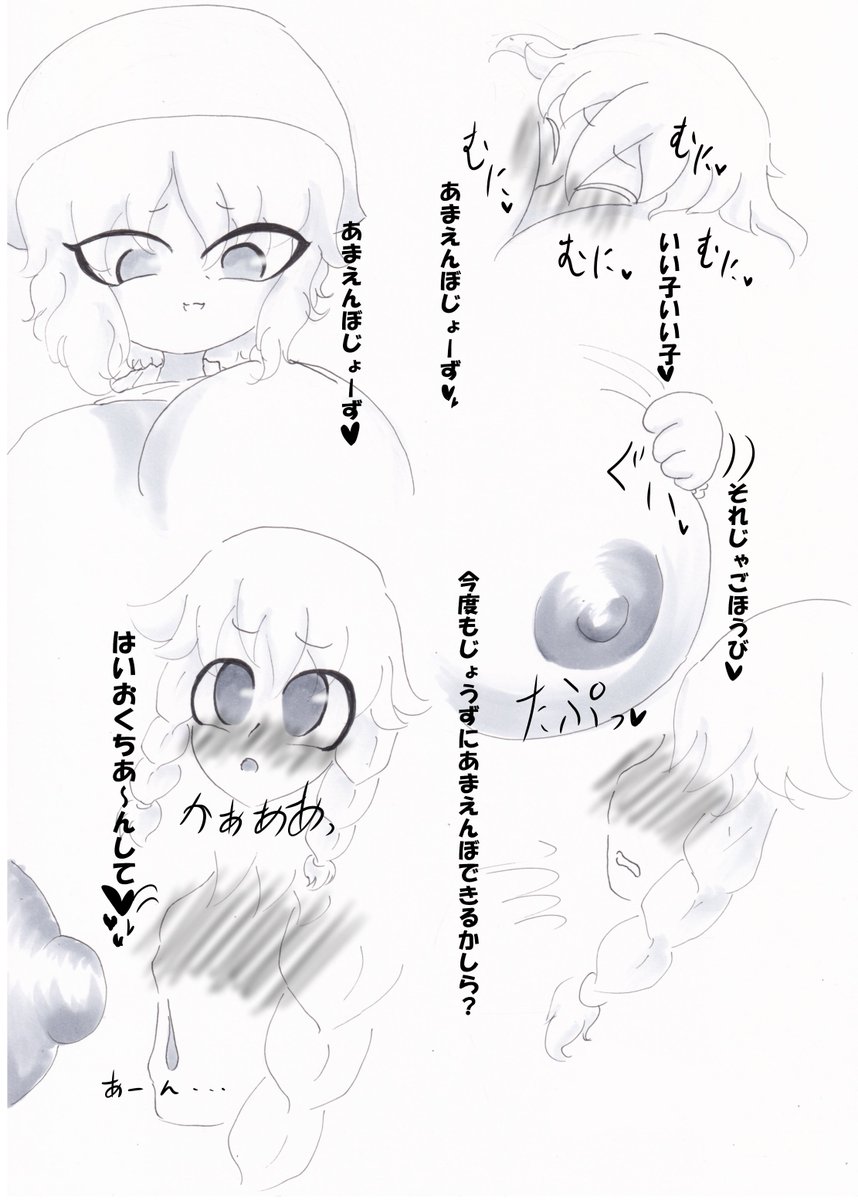 むに♥
むに♥
むに♥
むに♥
いい子いい子♥
あまえんぼじょーず♥
あまえんぼじょーず♥
ぐいっ♥
それじゃごほうび♥
たぷっ♥
今度もじょうずにあまえんぼできるかしら？
かぁぁぁぁっ
はいおくちあ～んして♥
あーん・・・